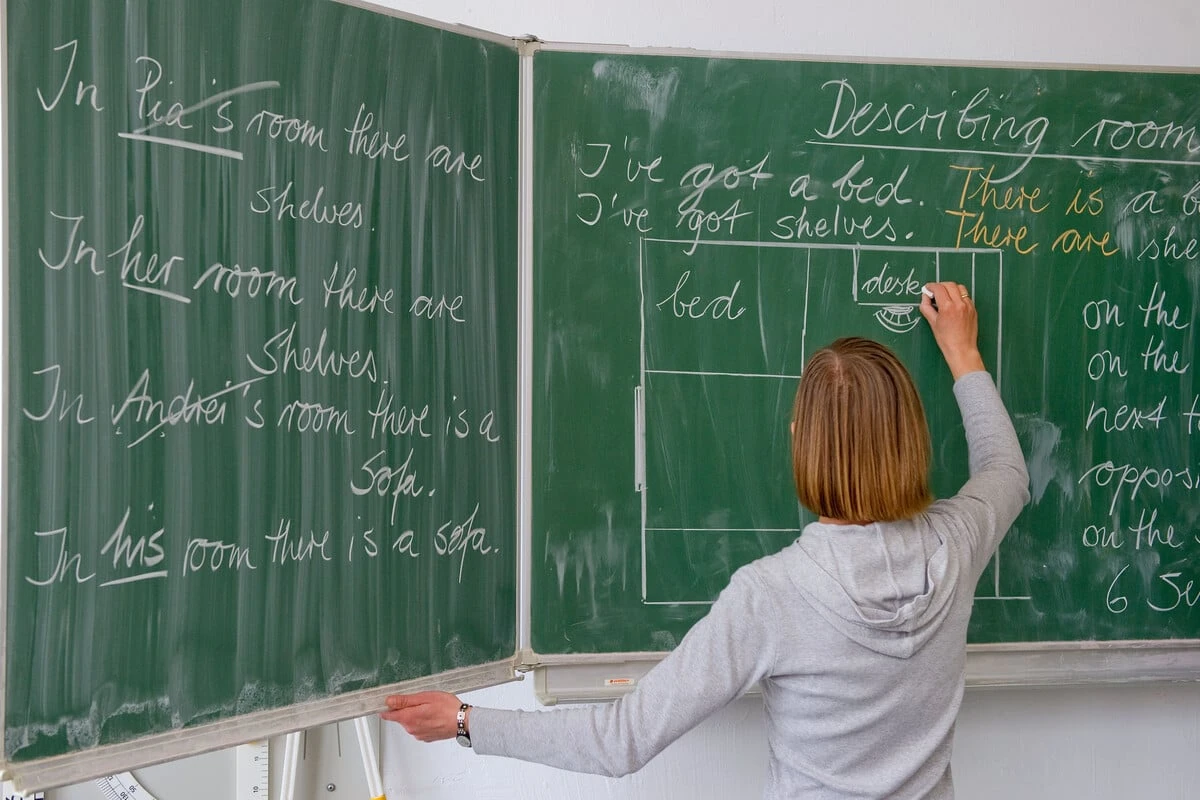 In Pia's room there are
shelves.
In her room there are
shelves.
In Andrei's room there is a
sofa.
In his room there is a sofa.
Describing room
I've got a bed. There is a
I've got shelves. There are she
bed
desk
on the
on the
next
opposi
on the
6